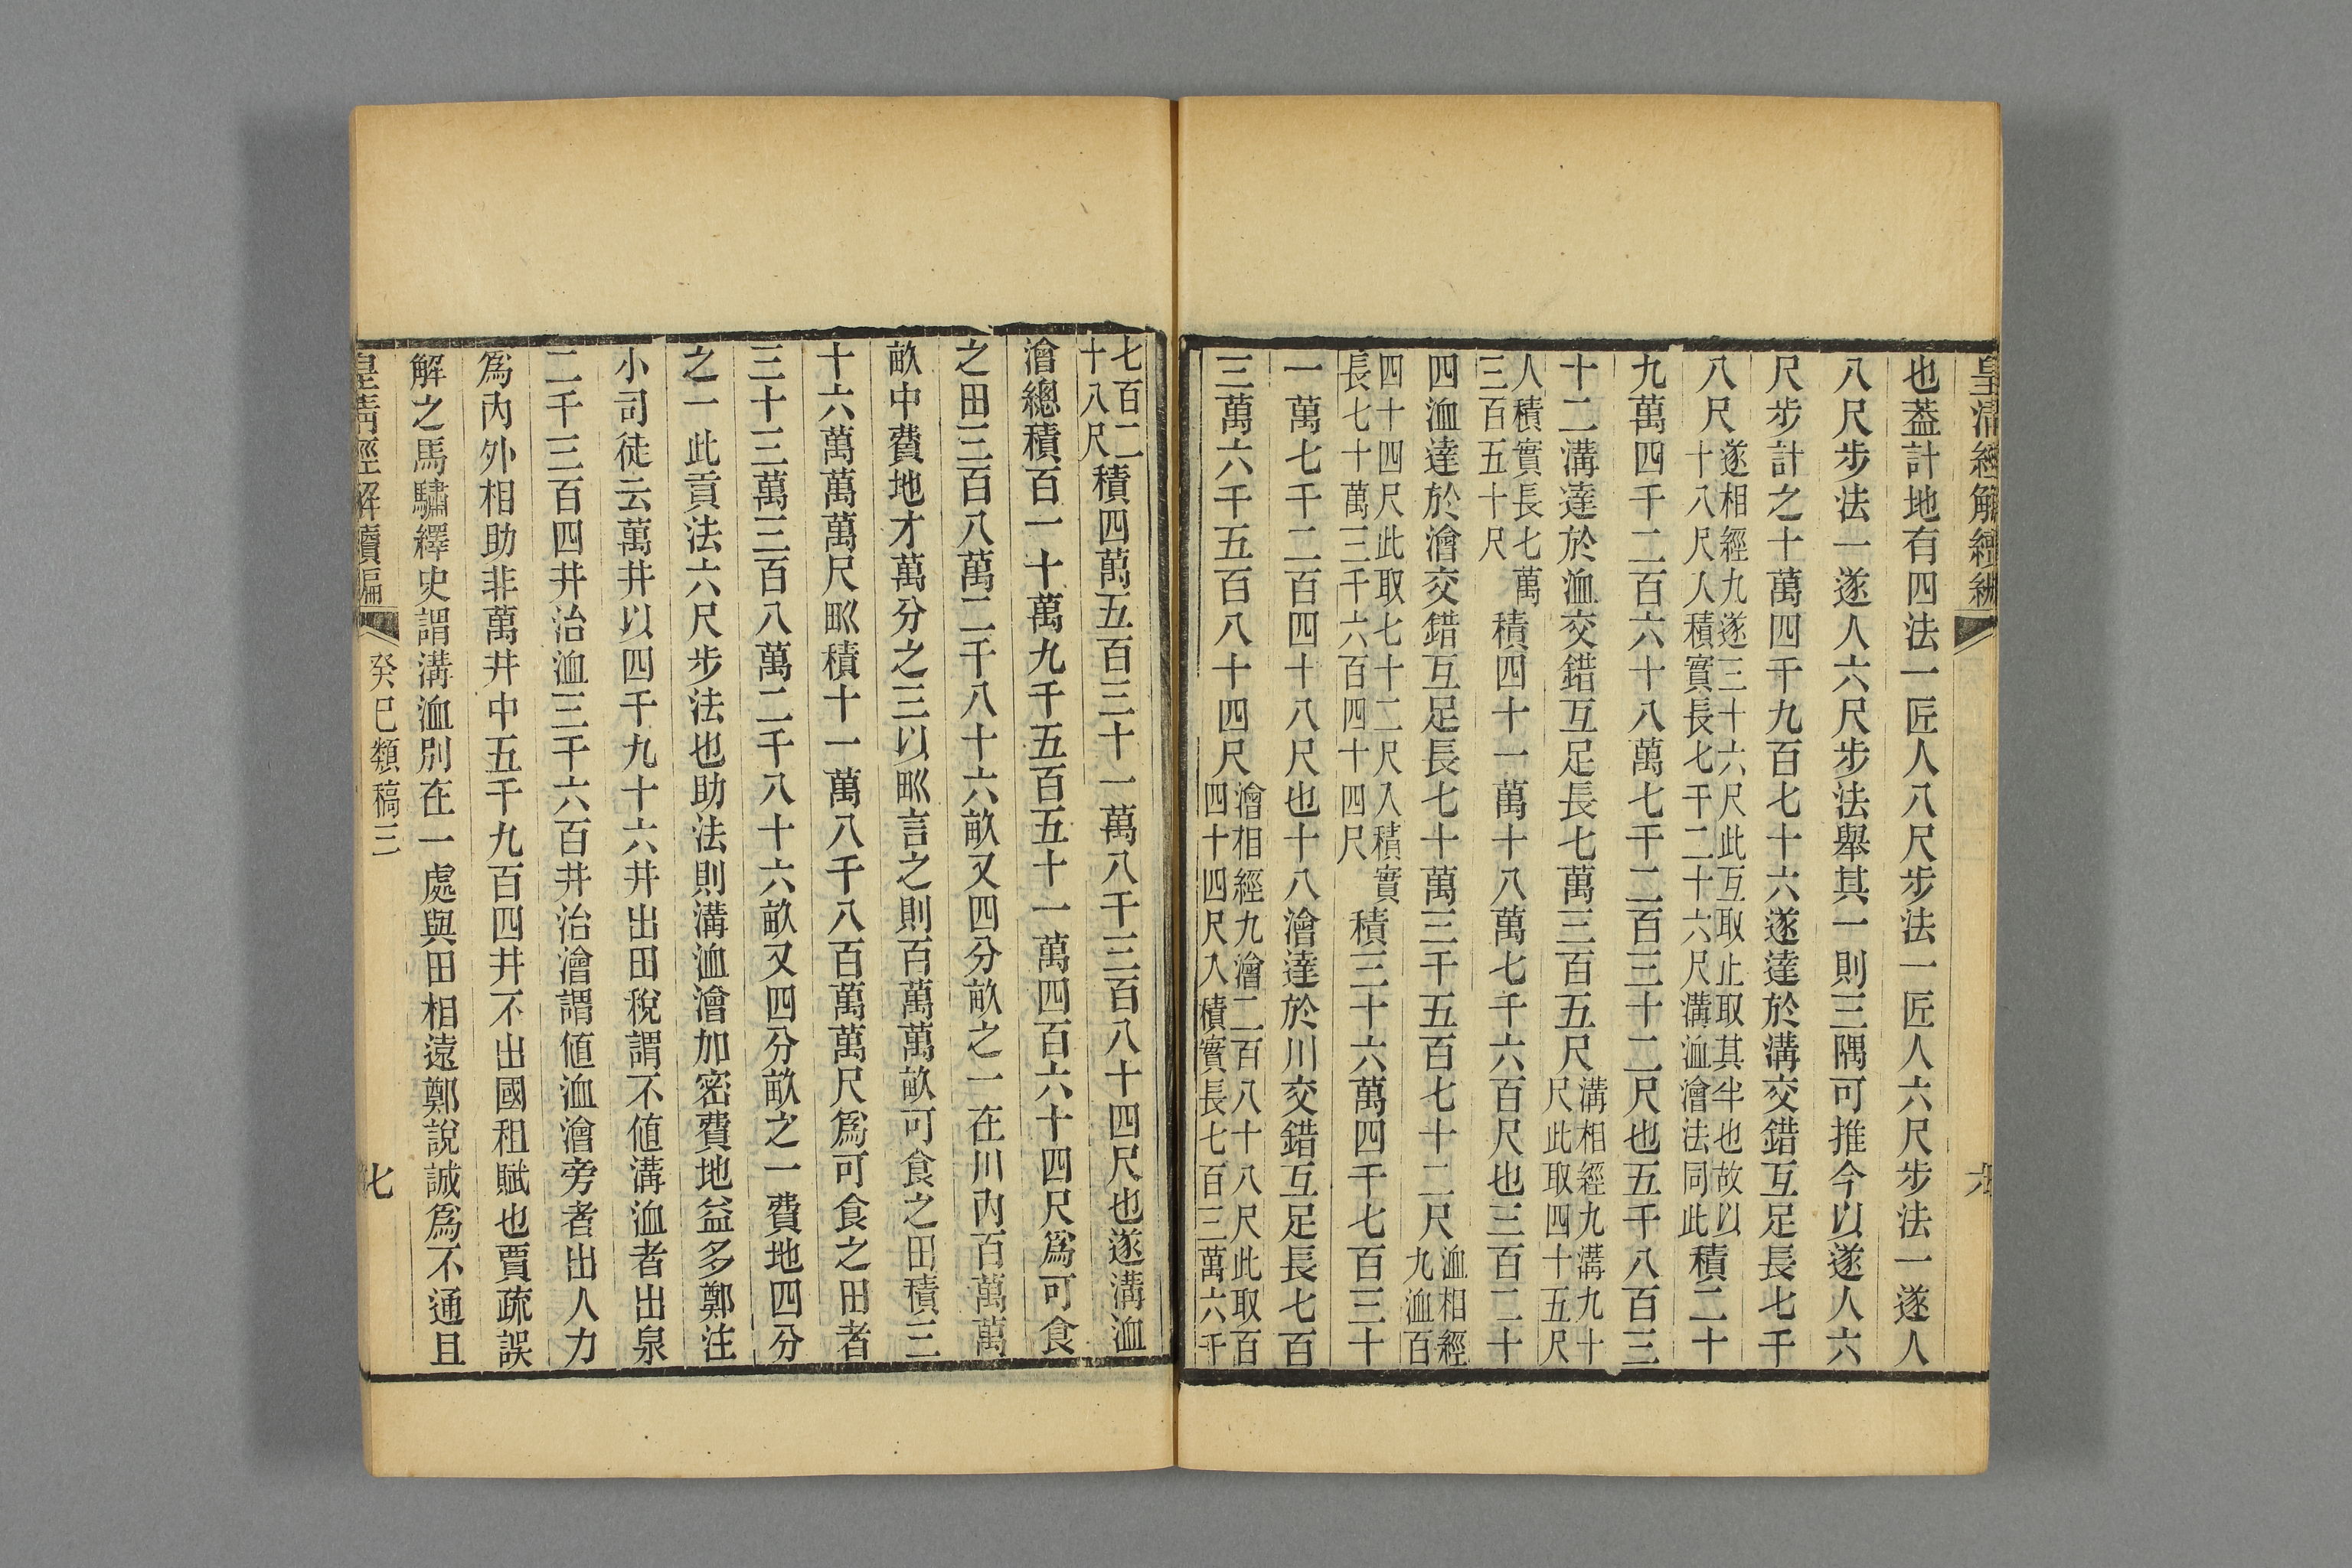 皇清經解續編
也葢計地有四法一匠人八尺步法一匠人六尺步法一遂人
八尺步法一遂人六尺步法舉其一則三隅可推今以遂人六
尺步計之十萬四千九百七十六遂達於溝交錯互足長七千
八尺遂相經九遂三十六尺此互取止取其半也故以十八尺入積實長七千二十六尺溝洫澮法同此積二十
九萬四千二百六十八萬七千二百三十二尺也五千八百三
十二溝達於洫交錯互足長七萬三百五尺溝相經九溝九十尺此取四十五尺
入積實長七萬三百五十尺積四十一萬十八萬七千六百尺也三百二十
四洫達於澮交錯互足長七十萬三千五百七十二尺洫相經九洫百
四十四尺此取七十二尺入積實長七十萬三千六百四十四尺積三十六萬四千七百三十
一萬七千二百四十八尺也十八澮達於川交錯互足長七百
三萬六千五百八十四尺澮相經九澮二百八十八尺此取百四十四尺入積實長七百三萬六千
七百二十八尺積四萬五百三十一萬八千三百八十四尺也遂溝洫
澮總積百一十萬九千五百五十一萬四百六十四尺爲可食
之田三百八萬二千八十六畝又四分畝之一在川內百萬萬
畝中費地才萬分之三以甽言之則百萬萬畝可食之田積三
十六萬萬萬尺甽積十一萬八千八百萬萬尺爲可食之田者
三十三萬三百八萬二千八十六畝又四分畝之一費地四分
之一此貢法六尺步法也助法則溝洫澮加密費地益多鄭注
小司徒云萬井以四千九十六井出田稅謂不値溝洫者出泉
二千三百四井治洫三千六百井治澮謂値洫澮旁者出人力
爲內外相助非萬井中五千九百四井不出國租賦也賈疏誤
解之馬驌繹史謂溝洫別在一處與田相遠鄭說誠爲不通且
皇清經解續編 癸巳類稿三 七